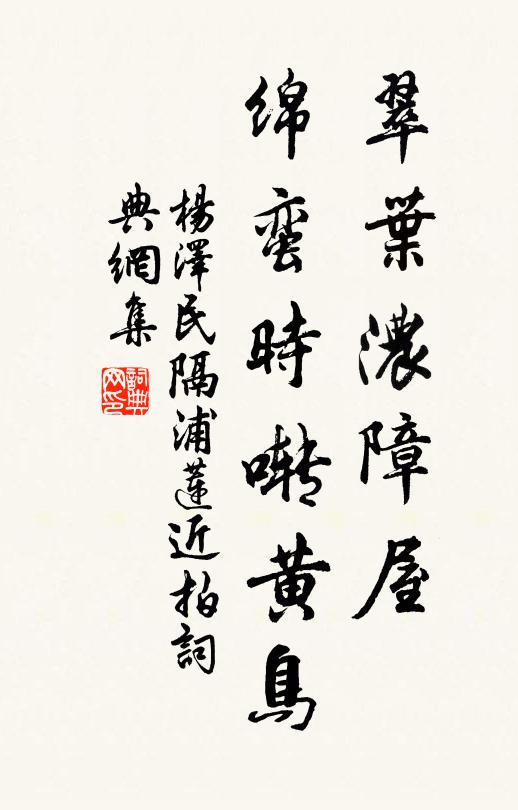 翠葉濃障屋
綿蛮時囀黄鳥
楊澤民隔浦蓮近拍詞
典網集
詞典網印